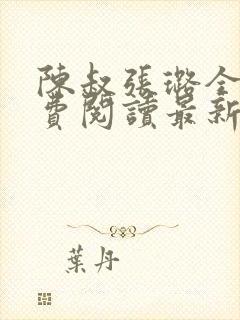 陳叔張璐全
費閱讀最新
葉丹